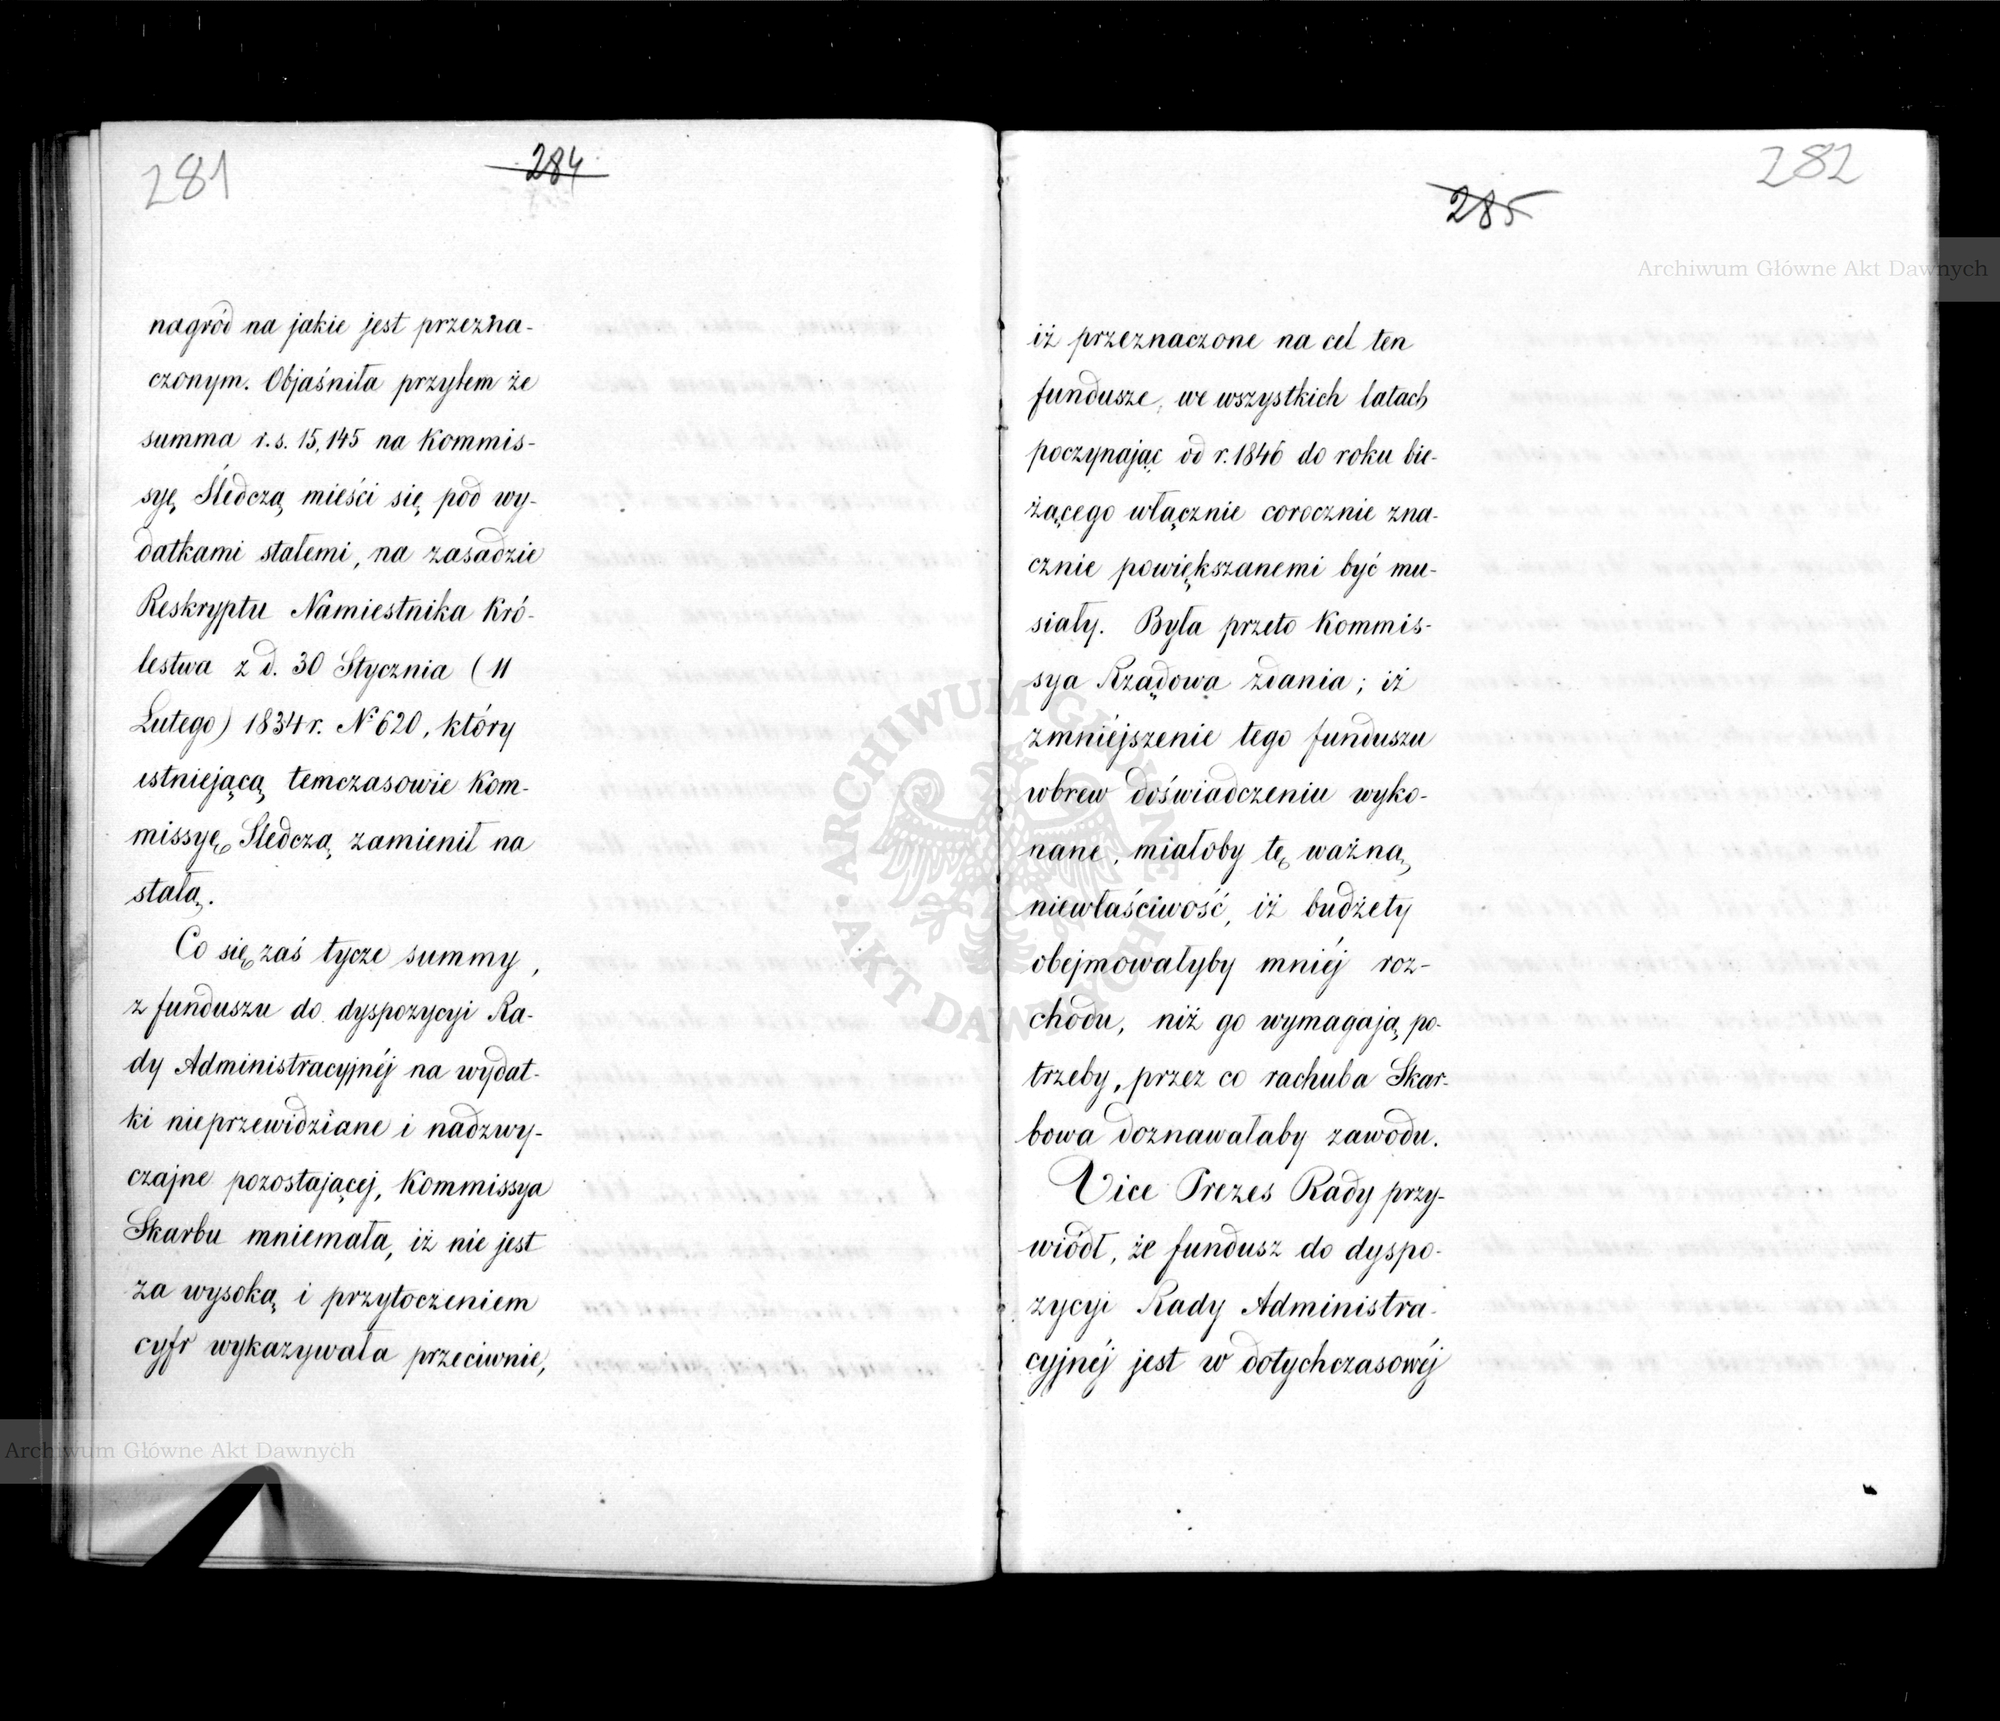 281
284
nagród na jakie jest przezna-
czonym. Objaśniła przytem że
summa r.s. 15,145 na Kommis-
syę Śledczą mieści się pod wy-
datkami stałemi, na zasadzie
Reskryptu Namiestnika Kró-
lestwa z d. 30 Stycznia (11
Lutego) 1834 r. № 620, który
istniejącą temczasowie Kom-
missyę Śledczą zamienił na
stałą.
Co się zaś tycze summy,
z funduszu do dyspozycyi Ra-
dy Administracyjnéj na wydat-
ki nieprzewidziane i nadzwy-
czajne pozostającej, Kommissya
Skarbu mniemała, iż nie jest
za wysoką i przytoczeniem
cyfr wykazywała przeciwnie,
282
285
iż przeznaczone na cel ten
fundusze, we wszystkich latach
poczynając od r. 1846 do roku bie-
żącego włącznie corocznie zna-
cznie powiększanemi być mu-
siały. Była przeto Kommis-
sya Rządowa zdania; iż
zmniéjszenie tego funduszu
wbrew doświadczeniu wyko-
nane, miałoby tę ważną
niewłaściwość, iż budżety
obejmowałyby mniéj roz-
chodu, niż go wymagają po-
trzeby, przez co rachuba Skar-
bowa doznawałaby zawodu.
Vice Prezes Rady przy-
wiódł, że fundusz do dyspo-
zycyi Rady Administra-
cyjnéj jest w dotychczasowéj
Archiwum Główne Akt Dawnych
Archiwum Główne Akt Dawnych
ARCHIWUM GŁÓWNE
AKT DAWNYCH